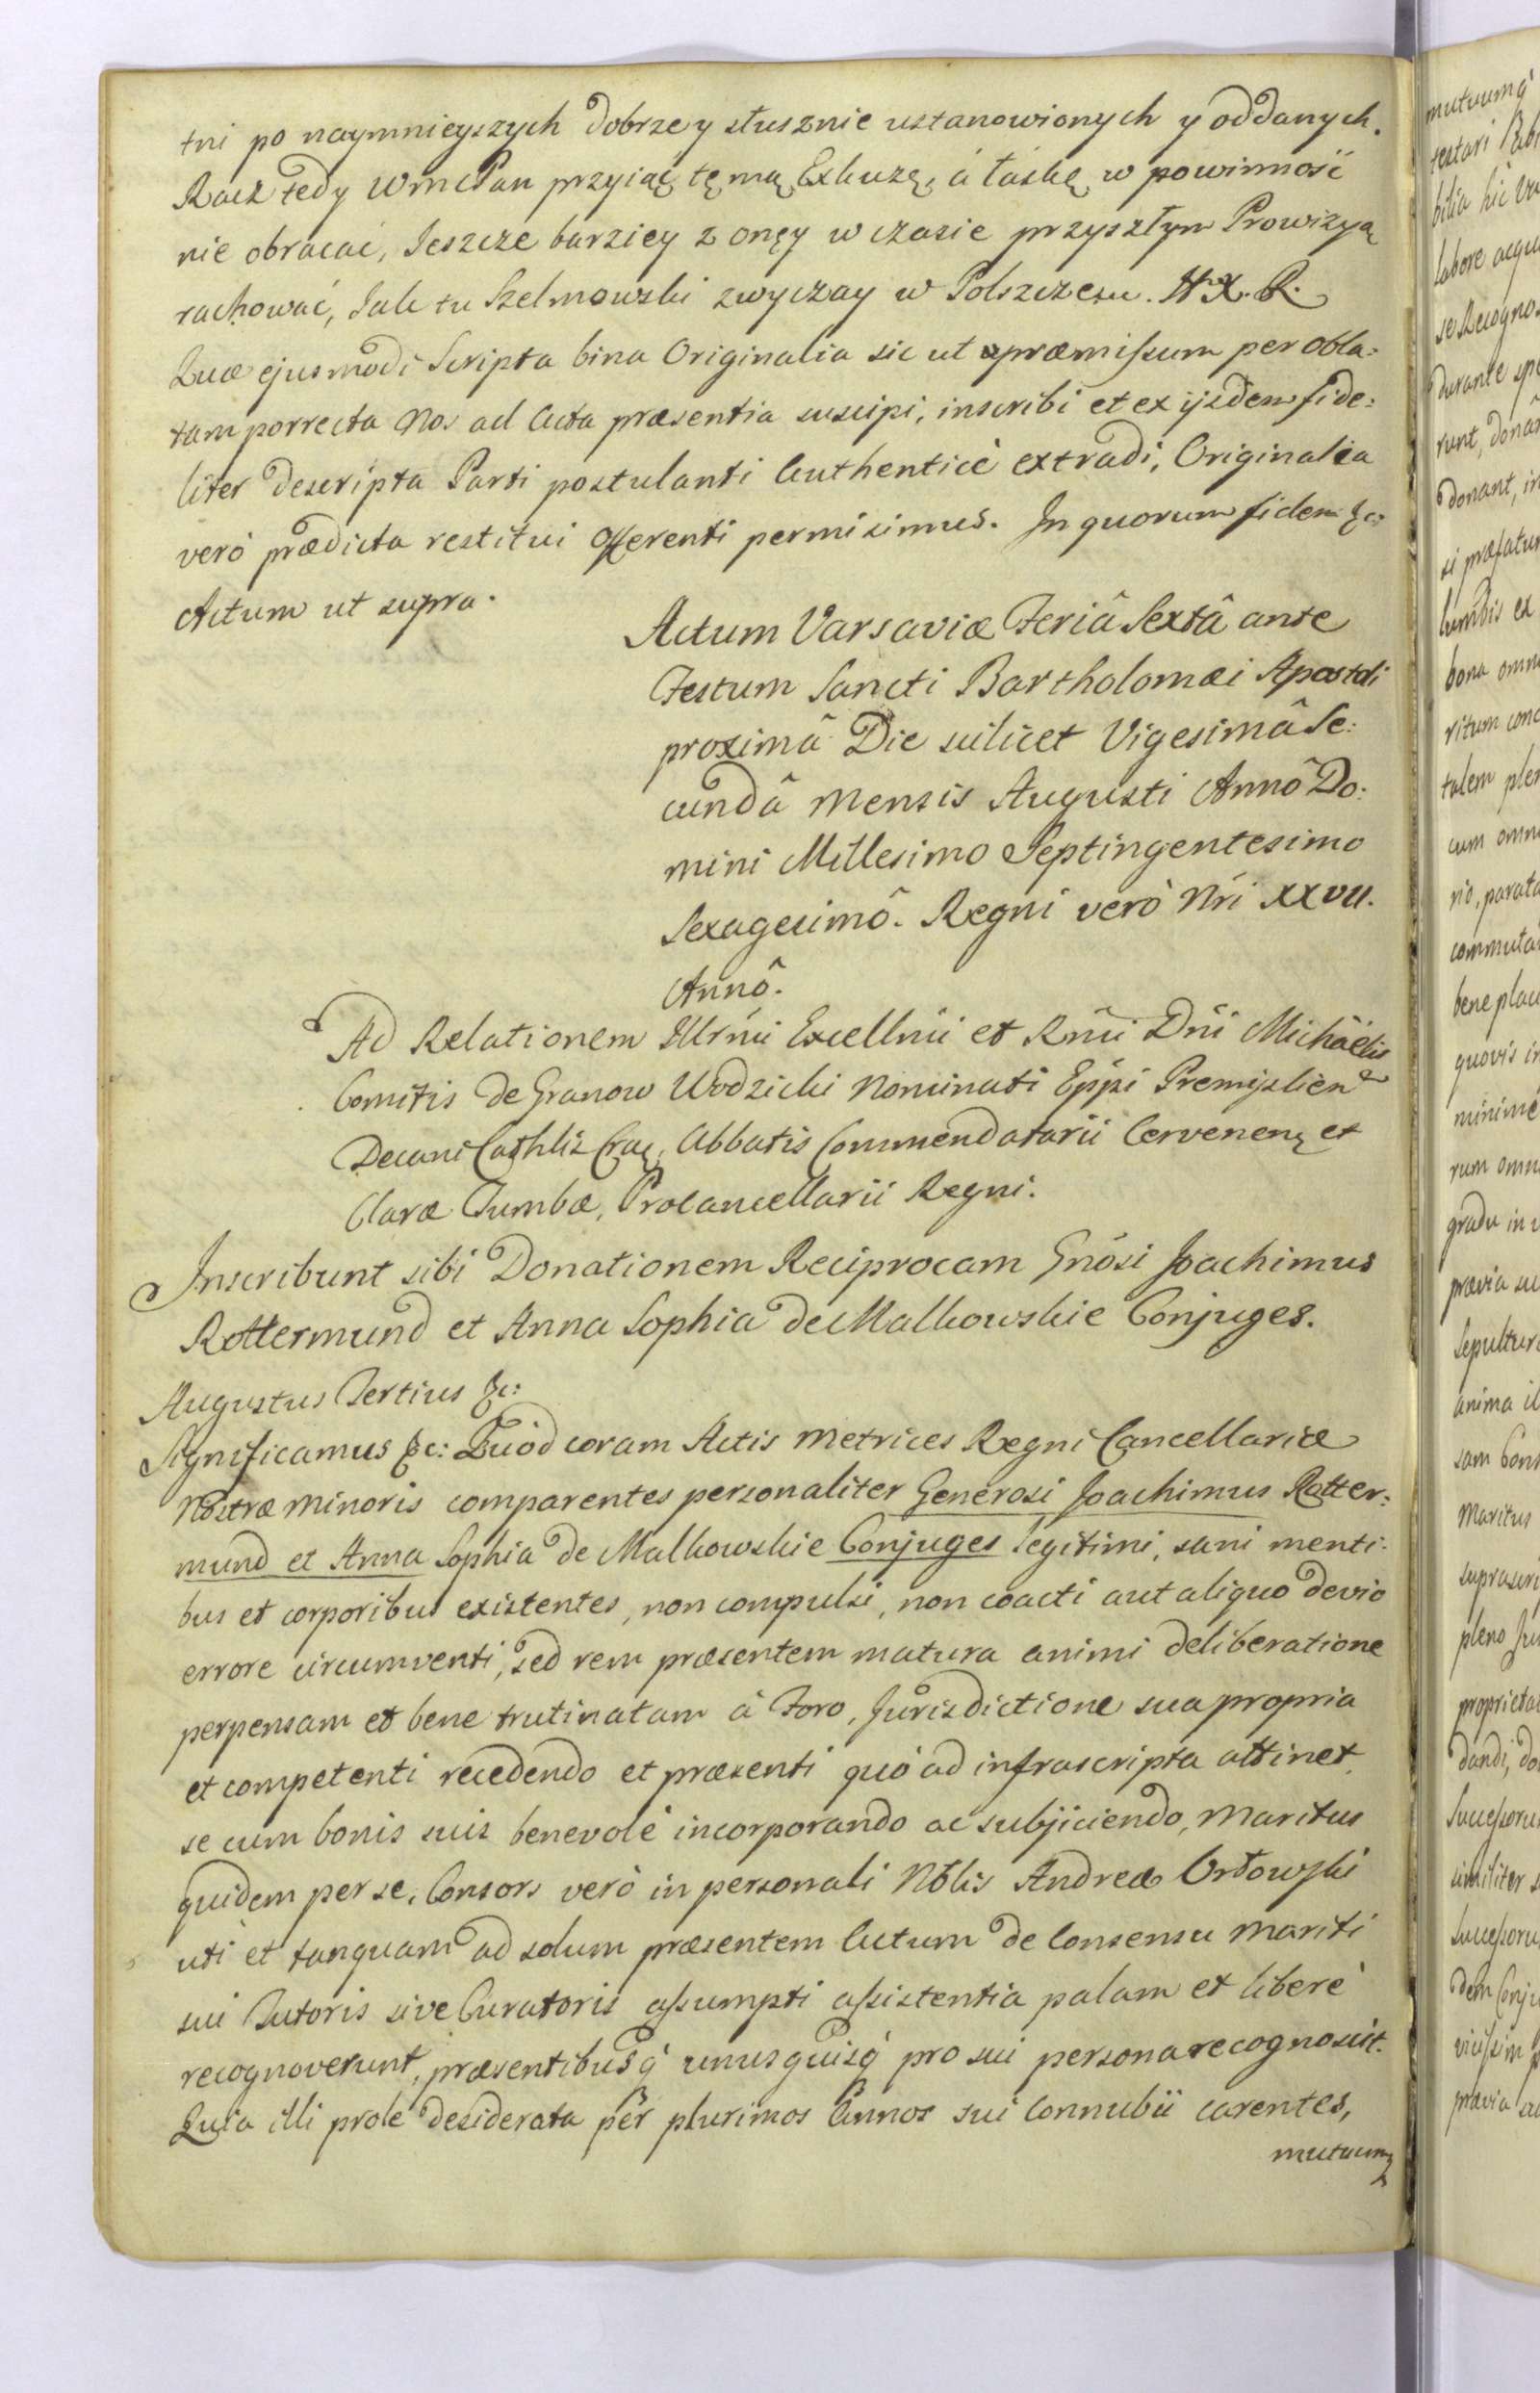 tni po naymnieyszych dobrze y słusznie ustanowionych y oddanych.
Racz tedy WmcPan przyiąć tę mą Exkuzę, á łaskę w powinność
nie obracać, Jeszcze barziey z onęy w czasie przyszłym Prowizyą
rachować, Jak tu Szelmowski zwyczay w Polszcze su. H. X. R.
Quæ ejusmodi Scripta bina Originalia sic ut præmissum per obla:
tam porrecta Nos ad Acta præsentia suscipi, inscribi et ex ijsdem fide:
liter descripta Parti postulanti Authenticè extradi, Originalia
verò prædicta restitui Offerenti permisimus. In quorum fidem &c:
Actum ut supra.
Actum Varsaviæ Feriâ Sextâ ante
Festum Sancti Bartholomæi Apostoli
proximâ Die scilicet Vigesimâ Se:
cundâ Mensis Augusti Annô Do:
mini Millesimo Septingentesimo
Sexagesimô. Regni verò Nri XXVII.
Annô.
Ad Relationem Illrmi Excellmi et Rmi Dni Michäelis
Comitis de Granow Wodzicki Nominati Eppi Premislien
Decani Cathlis Crac, Abbatis Commendatarii Cervenen et
Claræ Tumbæ, Procancellarii Regni.
Inscribunt sibi Donationem Reciprocam Gnosi Joachimus
Rottermund et Anna Sophia de Malkowskie Conjuges.
Augustus Tertius &c:
Significamus &c: Quod coram Actis Metrices Regni Cancellariæ
Nostræ Minoris comparentes personaliter Generosi Joachimus Rotter:
mund et Anna Sophia de Malkowskie Conjuges legitimi, sani menti:
bus et corporibus existentes, non compulsi, non coacti aut aliquo devio
errore circumventi, sed rem præsentem matura animi deliberatione
perpensam et bene trutinatam à Foro, Jurisdictione sua propria
et competenti recedendo et præsenti quó ad infrascripta attinet,
se cum bonis suis benevolè incorporando ac subjiciendo, Maritus
quidem per se, Consors verò in personali Nblis Andreæ Orłowski
uti et tanquam ad solum præsentem Actum de Consensu Mariti
sui Tutoris sive Curatoris assumpti assistentia palam et liberè
recognoverunt, præsentibusq́ unusquisq́ pro sui persona recognoscit.
Quia illi prole desiderata per plurimos Annos sui Connubii carentes,
mutuumq